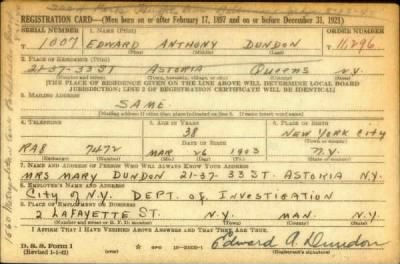 REGISTRATION CARD—(Men born on or after February 17, 1897 and on or before December 31, 1921)
SERIAL NUMBER
1. NAME (Print)
ORDER NUMBER
T 1007 EDWARD ANTHONY DUNDON T 11,296
(First) (Middle) (Last)
2. PLACE OF RESIDENCE (Print)
21-37-33 ST ASTORIA QUEENS N.Y.
(Number and street) (Town, township, village, or city) (County) (State)
[THE PLACE OF RESIDENCE GIVEN ON THE LINE ABOVE WILL DETERMINE LOCAL BOARD
JURISDICTION; LINE 2 OF REGISTRATION CERTIFICATE WILL BE IDENTICAL]
3. MAILING ADDRESS
SAME
[Mailing address if other than place indicated on line 2. If same insert word same]
4. TELEPHONE
5. AGE IN YEARS
6. PLACE OF BIRTH
38
NEW YORK CITY
DATE OF BIRTH
(Town or county)
RA8 7472 MAR 26 1903 N.Y.
(Exchange) (Number) (Mo.) (Day) (Yr.) (State or country)
7. NAME AND ADDRESS OF PERSON WHO WILL ALWAYS KNOW YOUR ADDRESS
MRS MARY DUNDON 21-37 33 ST ASTORIA N.Y.
8. EMPLOYER'S NAME AND ADDRESS
City of N.Y. DEPT. of INVESTIGATION
9. PLACE OF EMPLOYMENT OR BUSINESS
2 LAFAYETTE ST. N.Y. MAN. N.Y.
(Number and street or R. F. D. number) (Town) (County) (State)
I AFFIRM THAT I HAVE VERIFIED ABOVE ANSWERS AND THAT THEY ARE TRUE.
D. S. S. Form 1
(Revised 1-1-42)
GPO
Edward A. Dundon
(Registrant's signature)